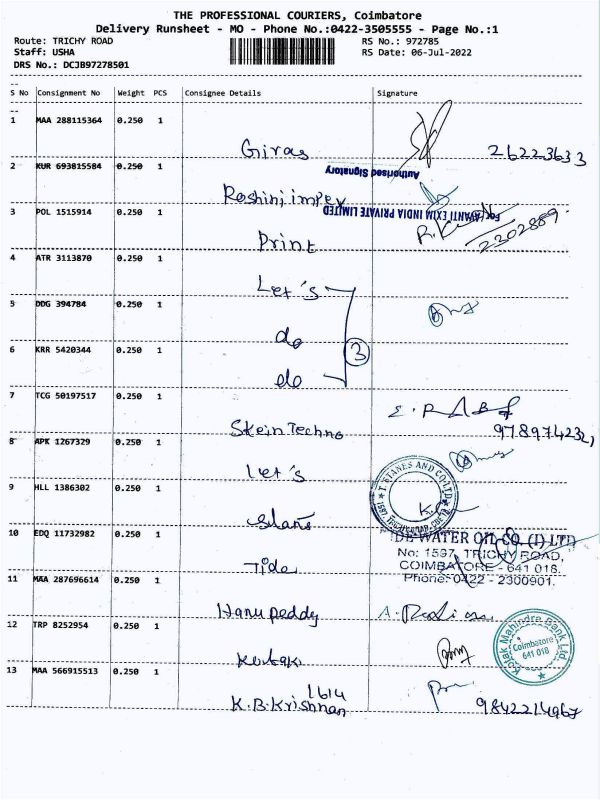 THE PROFESSIONAL COURIERS, Coimbatore
Delivery Runsheet - MO - Phone No.:0422-3505555 - Page No.:1
Route: TRICHY ROAD RS No.: 972785
Staff: USHA RS Date: 06-Jul-2022
DRS No.: DCJB97278501
S No Consignment No Weight PCS Consignee Details Signature
1 MAA 288115364 0.250 1
Giras 26223633
2 KUR 693815584 0.250 1
Authorised Signatory
Roshini impex
For AVANTI EXIM INDIA PRIVATE LIMITED
3 POL 1515914 0.250 1
Print 2302889
4 ATR 3113870 0.250 1
Let's
5 DDG 394784 0.250 1
do
3
6 KRR 5420344 0.250 1
do
7 TCG 50197517 0.250 1
Skein Techno
8 APK 1267329 0.250 1
Let's
T STANES AND CO-LTD
9 HLL 1386302 0.250 1
10 EDQ 11732982 0.250 1
TIDE WATER OIL CO. (I) LTD
No: 1597, TRICHY ROAD,
COIMBATORE - 641 018.
Phone: 0422 - 2300901.
Tide
11 MAA 287696614 0.250 1
Hanu peddy
12 TRP 8252954 0.250 1
Kotak
Kotak Mahindra Bank Ltd.
Coimbatore
641 018
13 MAA 566915513 0.250 1
1614
K.B.Krishnan 9842214967